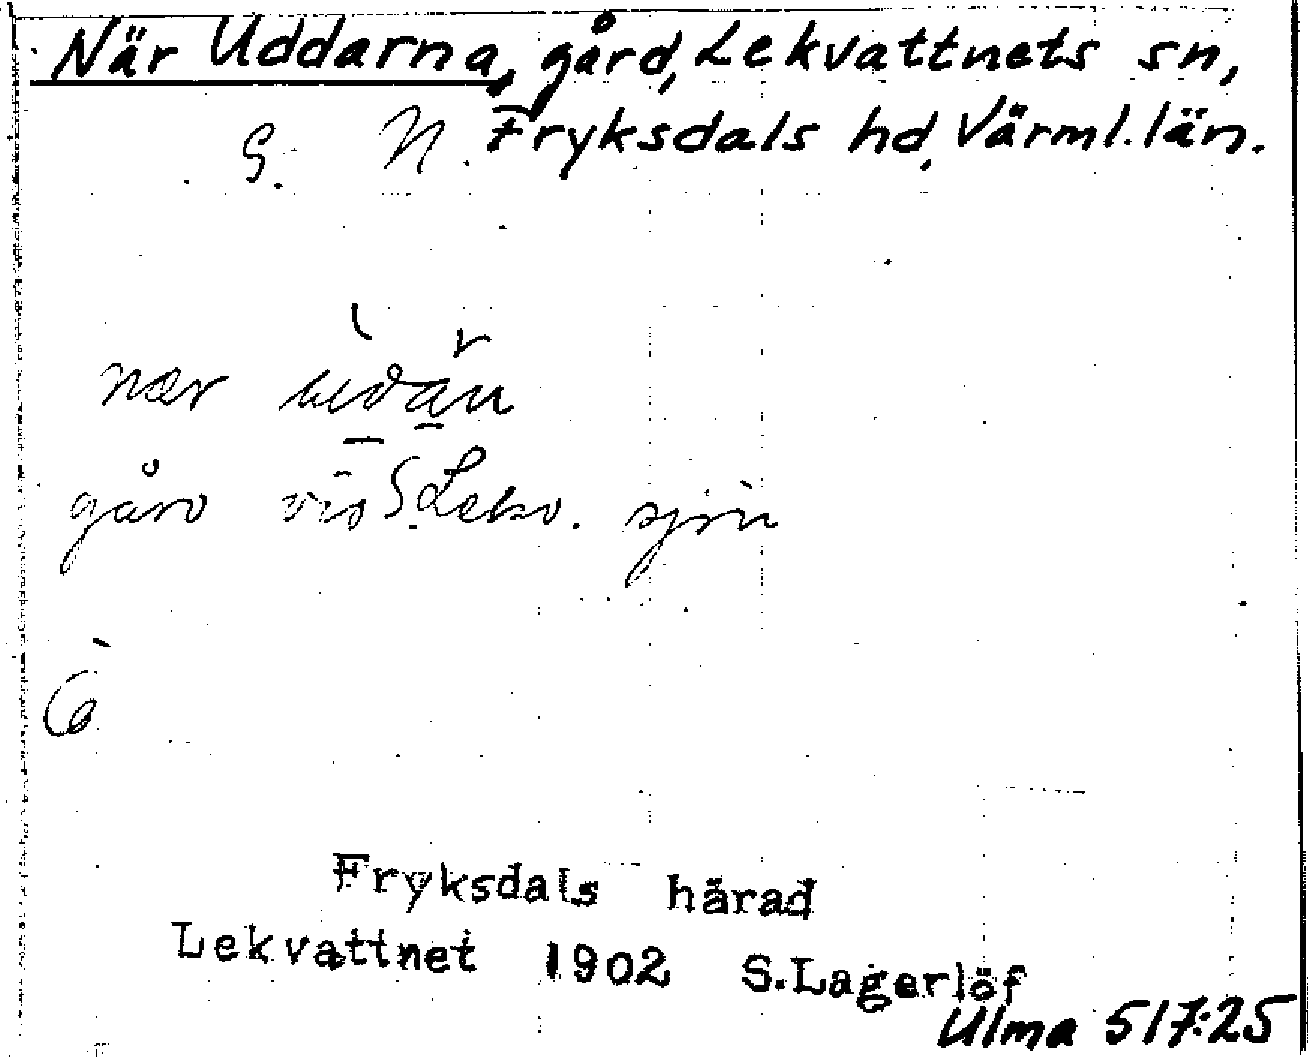 När Uddarna, gård, Lekvattnets sn,
G. N. Fryksdals hd, Värml. län.
nær
gård vid S. Lekv. sjön
Fryksdals härad
Lekvattnet 1902 S. Lagerlöf
Ulma 517:25